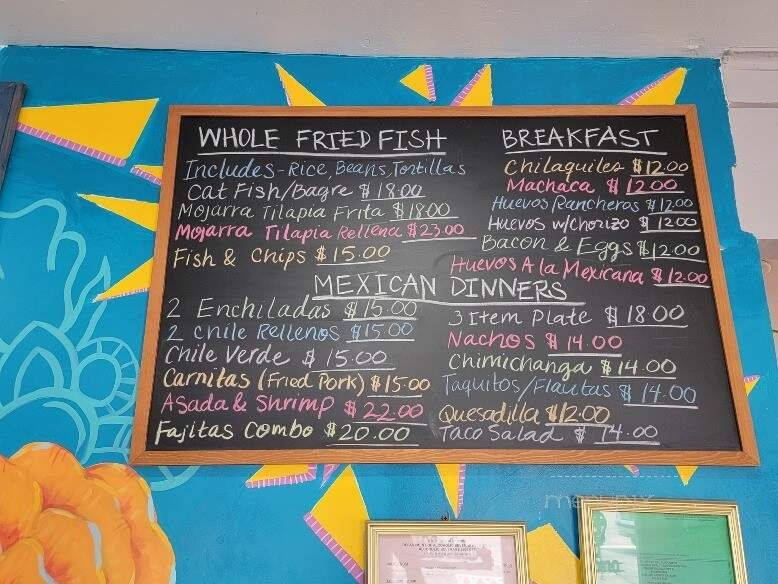 WHOLE FRIED FISH
Includes - Rice, Beans, Tortillas
Cat Fish/Bagre $18.00
Mojarra Tilapia Frita $18.00
Mojarra Tilapia Rellena $23.00
Fish & Chips $15.00
BREAKFAST
Chilaquiles $12.00
Machaca $12.00
Huevos Rancheros $12.00
Huevos w/Chorizo $12.00
Bacon & Eggs $12.00
Huevos A la Mexicana $12.00
MEXICAN DINNERS
2 Enchiladas $15.00
2 Chile Rellenos $15.00
Chile Verde $15.00
Carnitas (Fried Pork) $15.00
Asada & Shrimp $22.00
Fajitas Combo $20.00
3 Item Plate $18.00
Nachos $14.00
Chimichanga $14.00
Taquitos/Flautas $14.00
Quesadilla $12.00
Taco Salad $14.00